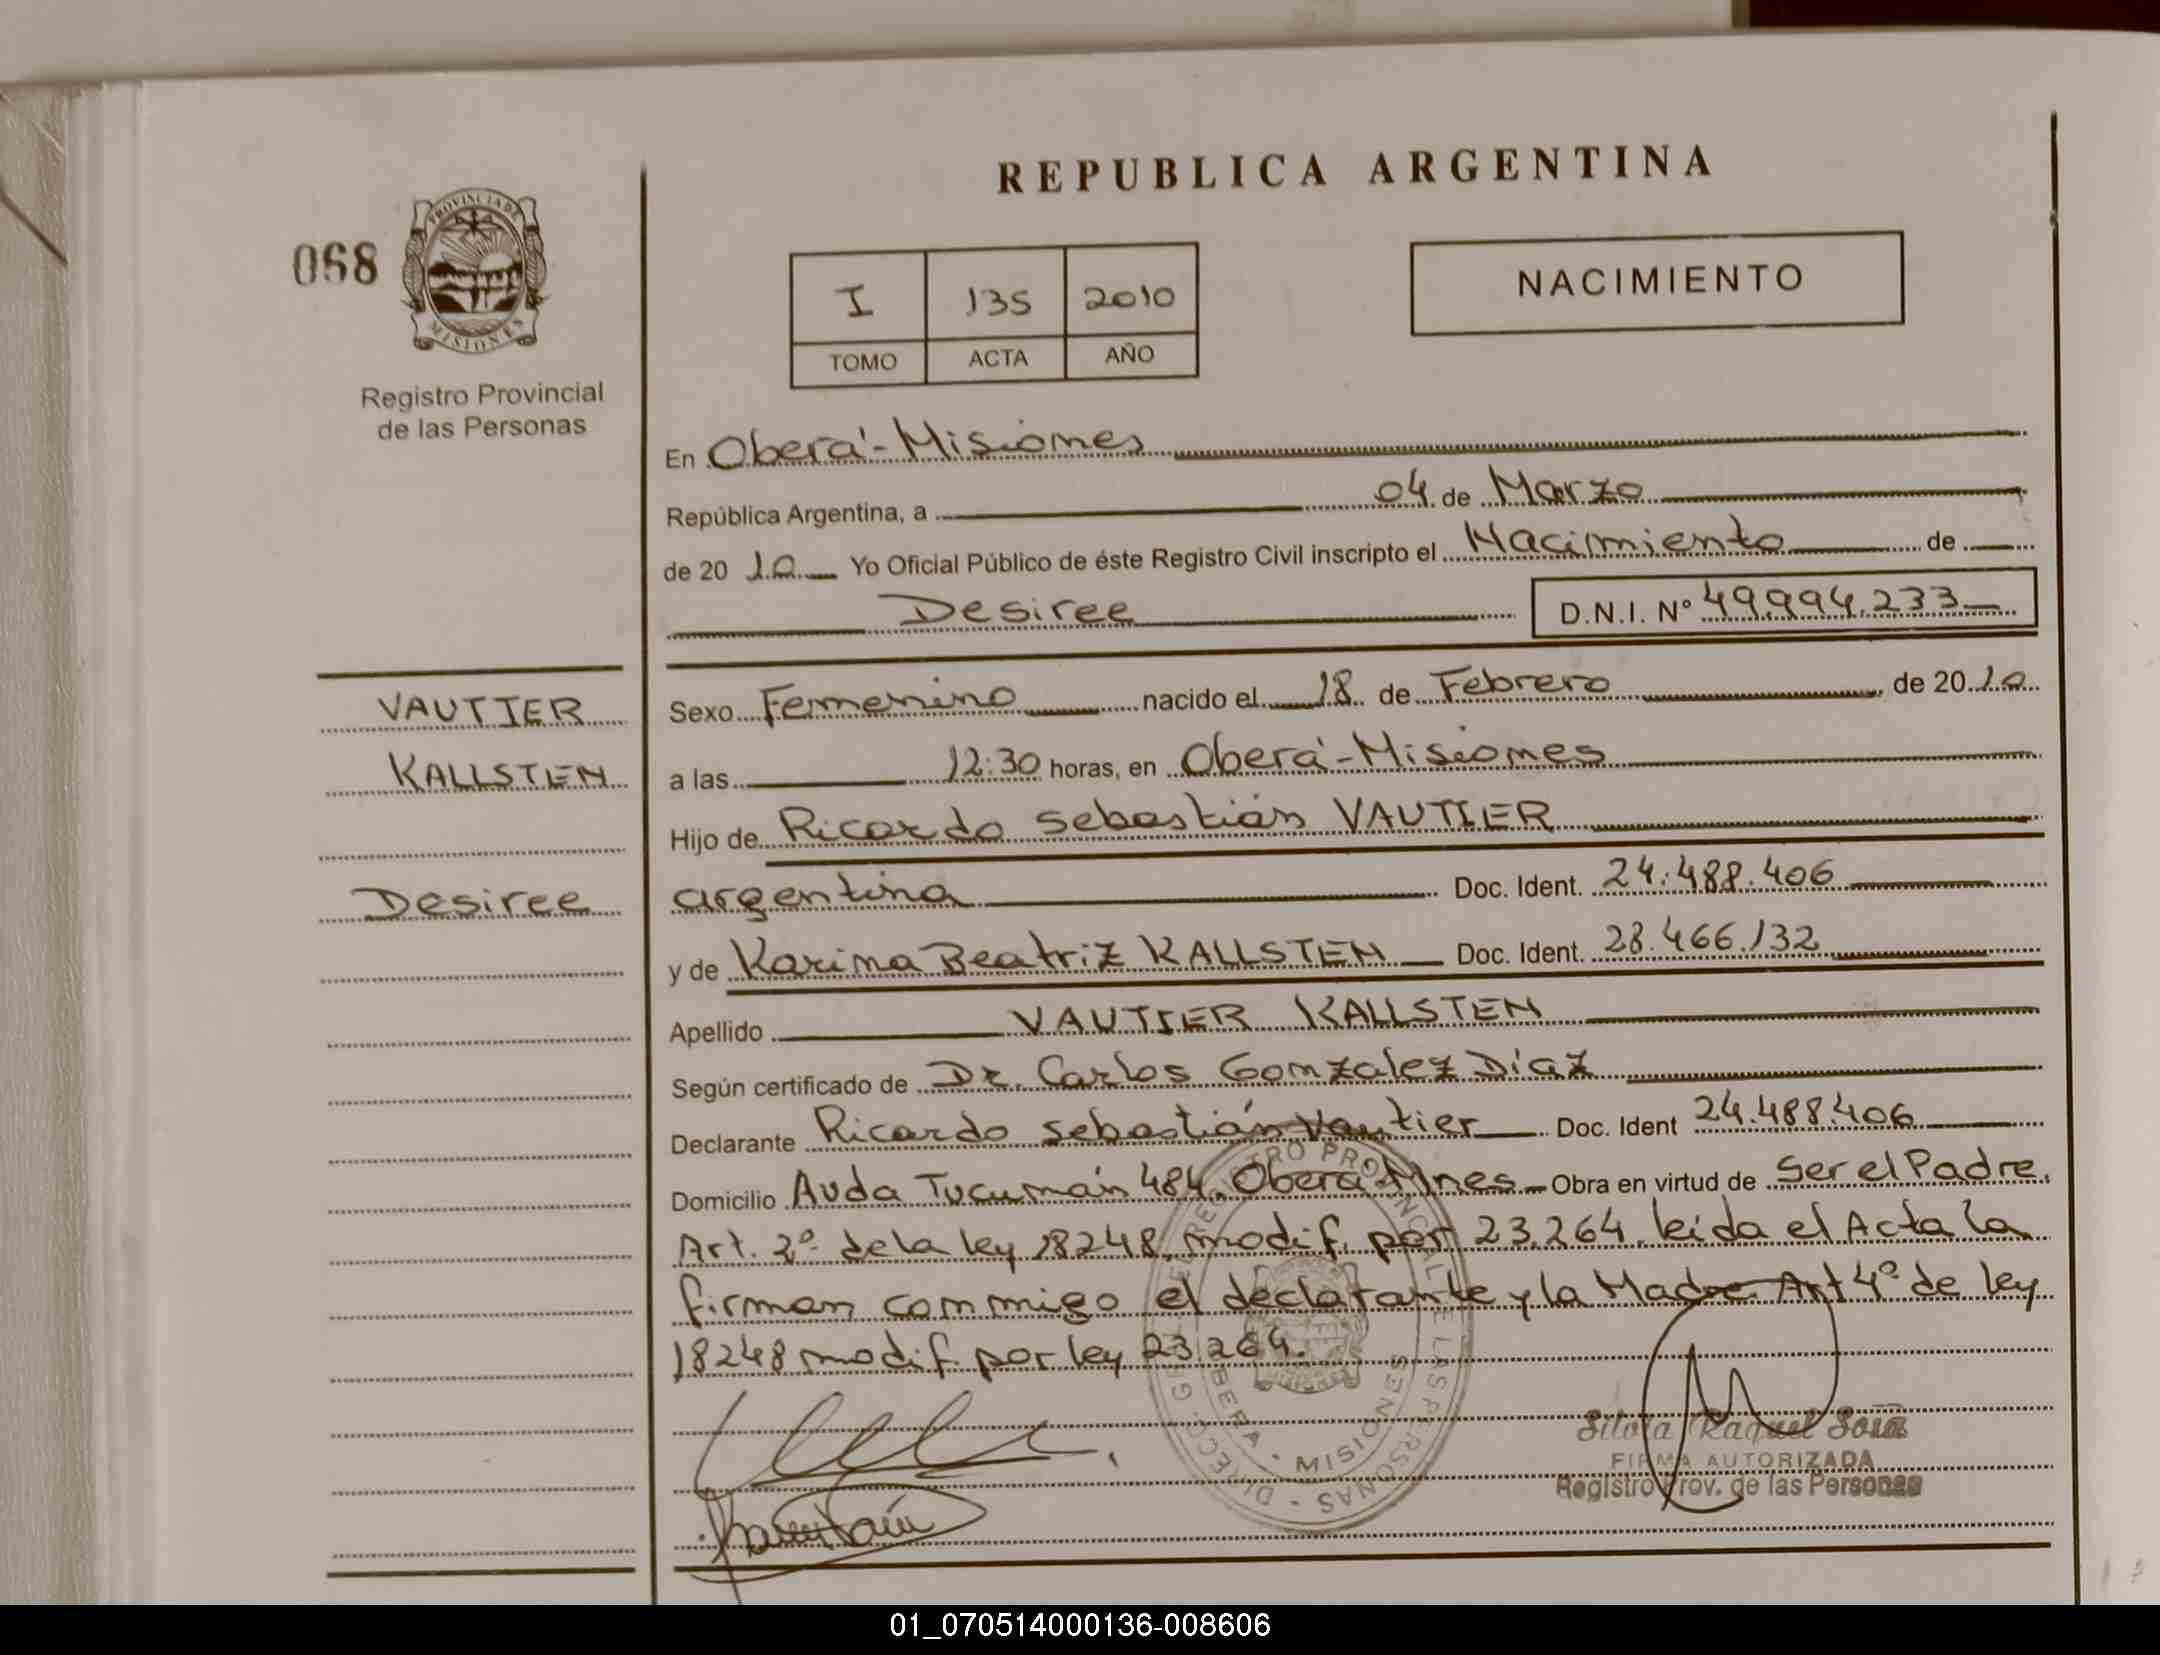 REPUBLICA ARGENTINA
068
PROVINCIA DE
MISIONES
Registro Provincial
de las Personas
I 135 2010
TOMO ACTA AÑO
NACIMIENTO
En Oberá-Misiones
República Argentina, a 04 de Marzo
de 20 10 Yo Oficial Público de éste Registro Civil inscripto el Nacimiento de
Desiree D.N.I. N° 49.994.233
VAUTIER
KALLSTEN
Desiree
Sexo Femenino nacido el 18 de Febrero de 20 10
a las 12:30 horas, en Oberá-Misiones
Hijo de Ricardo Sebastián VAUTIER
argentina Doc. Ident. 24.488.406
y de Karina Beatriz KALLSTEN Doc. Ident. 28.466.132
Apellido VAUTIER KALLSTEN
Según certificado de Dr. Carlos Gonzalez Díaz
Declarante Ricardo Sebastián Vautier Doc. Ident 24.488.406
Domicilio Avda Tucumán 484. Oberá-Mnes Obra en virtud de Ser el Padre.
Art. 2º de la ley 18248, modif. por 23.264. leída el Acta la
firman conmigo el declarante y la Madre Art 4º de ley
18248 modif. por ley 23.264.
DIRECC. G DEL REGISTRO PROVINCIAL DE LAS PERSONAS
OBERA - MISIONES
Silvia Raquel Sosa
FIRMA AUTORIZADA
Registro Prov. de las Personas
01_070514000136-008606